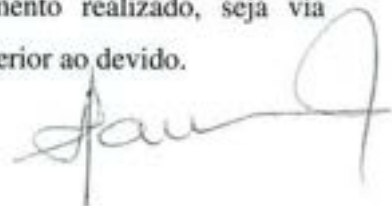 mento realizado, seja via
erior ao devido.